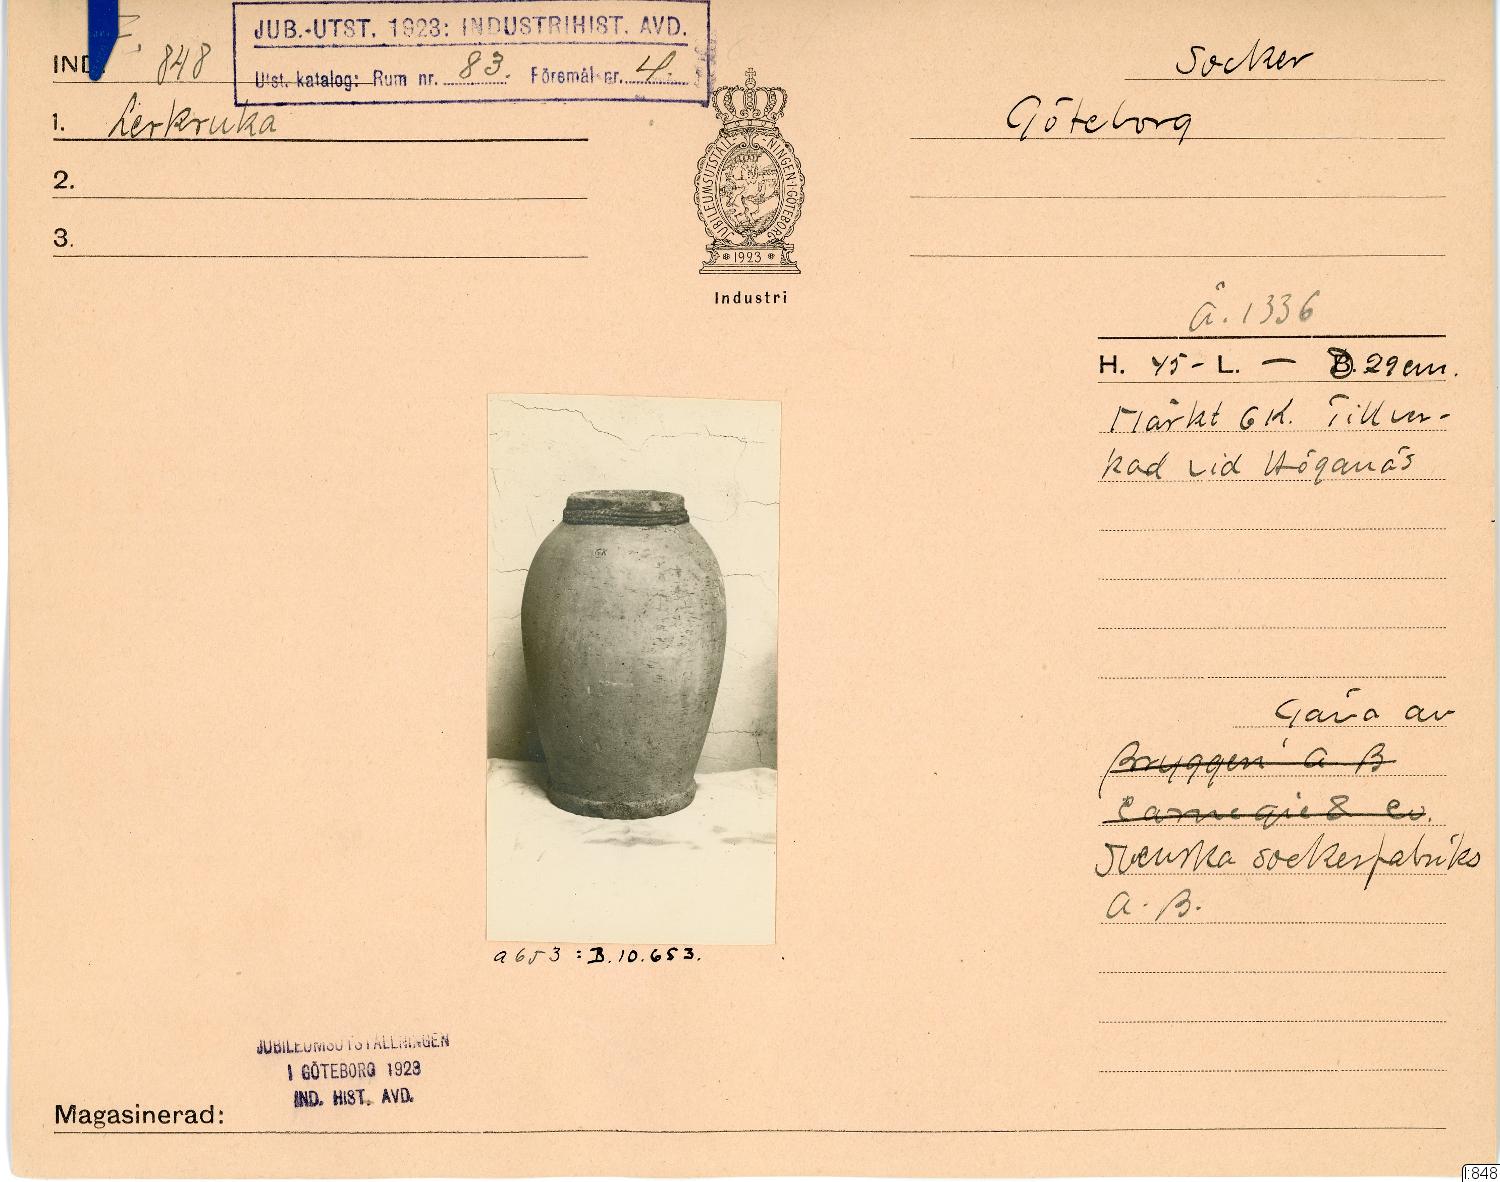 JUB.-UTST. 1923: INDUSTRIHIST. AVD.
Utst. katalog: Rum nr. 83. Föremål nr. 4.
IND. 848
1. Lerkruka
2.
3.
JUBILEUMSUTSTÄLLNINGEN I GÖTEBORG
1923
Industri
Socker
Göteborg
Å. 1336
H. 45 - L. — D. 29 cm.
Märkt GK. Tillver-
kad vid Höganäs
Gåva av
Bryggeri A B
Carnegie & Co.
Svenska sockerfabriks
A. B.
GK
a 653 : B. 10.653.
JUBILEUMSUTSTÄLLNINGEN
I GÖTEBORG 1923
IND. HIST. AVD.
Magasinerad:
I:848